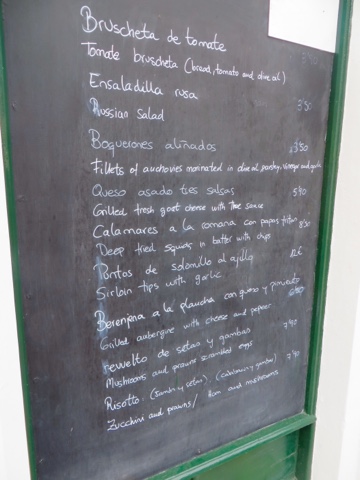 Bruscheta de tomate
Tomate bruscheta (bread, tomato and olive oil)
Ensaladilla rusa
Russian Salad 3'50
Boquerones aliñados 3'50
Fillets of anchovies marinated in olive oil, parsley, vinegar and
Queso asado tres salsas 5'90
Grilled fresh goat cheese with three sauce
Calamares a la romana con papas fritas
Deep fried squids in batter with chips
Puntas de solomillo al ajillo 12€
Sirloin tips with garlic
Berenjena a la plancha con queso y pimiento
Grilled aubergine with cheese and pepper
revuelto de setas y gambas 7'90
Mushrooms and prawns scrambled eggs
Risotto: (Jamón y setas) (calabacin y gambas) 7'90
Zucchini and prawns / Ham and mushrooms